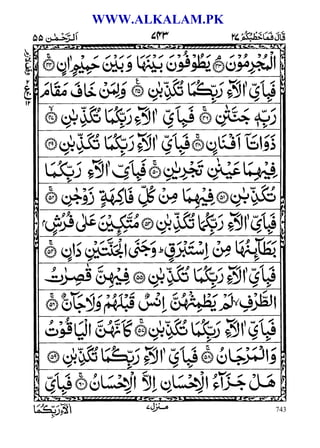 WWW.ALKALAM.PK
قَالَ فَمَا خَطْبُكُمْ ٢٧ ٧٤٣ اَلرَّحْمٰن ٥٥
الْمُجْرِمُوْنَ ۘ﴿٤٣﴾ يَطُوْفُوْنَ بَيْنَهَا وَبَيْنَ حَمِيْمٍ اٰنٍ ﴿٤٤﴾
فَبِاَيِّ اٰلَآءِ رَبِّكُمَا تُكَذِّبٰنِ ﴿٤٥﴾ وَلِمَنْ خَافَ مَقَامَ
رَبِّهٖ جَنَّتٰنِ ﴿٤٦﴾ فَبِاَيِّ اٰلَآءِ رَبِّكُمَا تُكَذِّبٰنِ ﴿٤٧﴾
ذَوَاتَاۤ اَفْنَانٍ ﴿٤٨﴾ فَبِاَيِّ اٰلَآءِ رَبِّكُمَا تُكَذِّبٰنِ ﴿٤٩﴾
فِيْهِمَا عَيْنٰنِ تَجْرِيٰنِ ﴿٥٠﴾ فَبِاَيِّ اٰلَآءِ رَبِّكُمَا
تُكَذِّبٰنِ ﴿٥١﴾ فِيْهِمَا مِنْ كُلِّ فَاكِهَةٍ زَوْجٰنِ ﴿٥٢﴾
فَبِاَيِّ اٰلَآءِ رَبِّكُمَا تُكَذِّبٰنِ ﴿٥٣﴾ مُتَّكِـِٕيْنَ عَلٰى فُرُشٍۭ
بَطَآئِنُهَا مِنْ اِسْتَبْرَقٍ ؕ وَجَنَا الْجَنَّتَيْنِ دَانٍ ﴿٥٤﴾
فَبِاَيِّ اٰلَآءِ رَبِّكُمَا تُكَذِّبٰنِ ﴿٥٥﴾ فِيْهِنَّ قٰصِرٰتُ
الطَّرْفِ ۙ لَمْ يَطْمِثْهُنَّ اِنْسٌ قَبْلَهُمْ وَلَا جَآنٌّ ﴿٥٦﴾
فَبِاَيِّ اٰلَآءِ رَبِّكُمَا تُكَذِّبٰنِ ﴿٥٧﴾ كَاَنَّهُنَّ الْيَاقُوْتُ
وَالْمَرْجَانُ ﴿٥٨﴾ فَبِاَيِّ اٰلَآءِ رَبِّكُمَا تُكَذِّبٰنِ ﴿٥٩﴾
هَلْ جَزَآءُ الْاِحْسَانِ اِلَّا الْاِحْسَانُ ﴿٦٠﴾ فَبِاَيِّ
اٰلَآءِ رَبِّكُمَا منزل ٧ 743